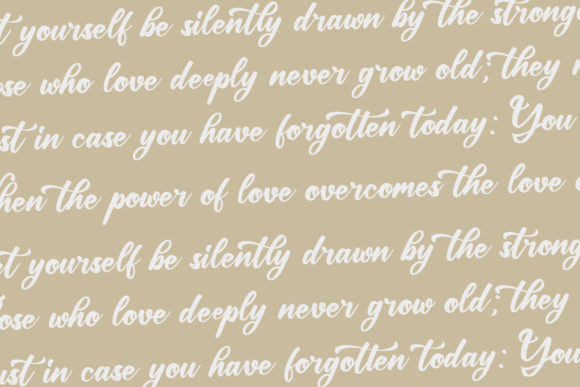 t yourself be silently drawn by the strong
ose who love deeply never grow old; they
ust in case you have forgotten today: You
hen the power of love overcomes the love
et yourself be silently drawn by the strong
ose who love deeply never grow old; they
ust in case you have forgotten today: You